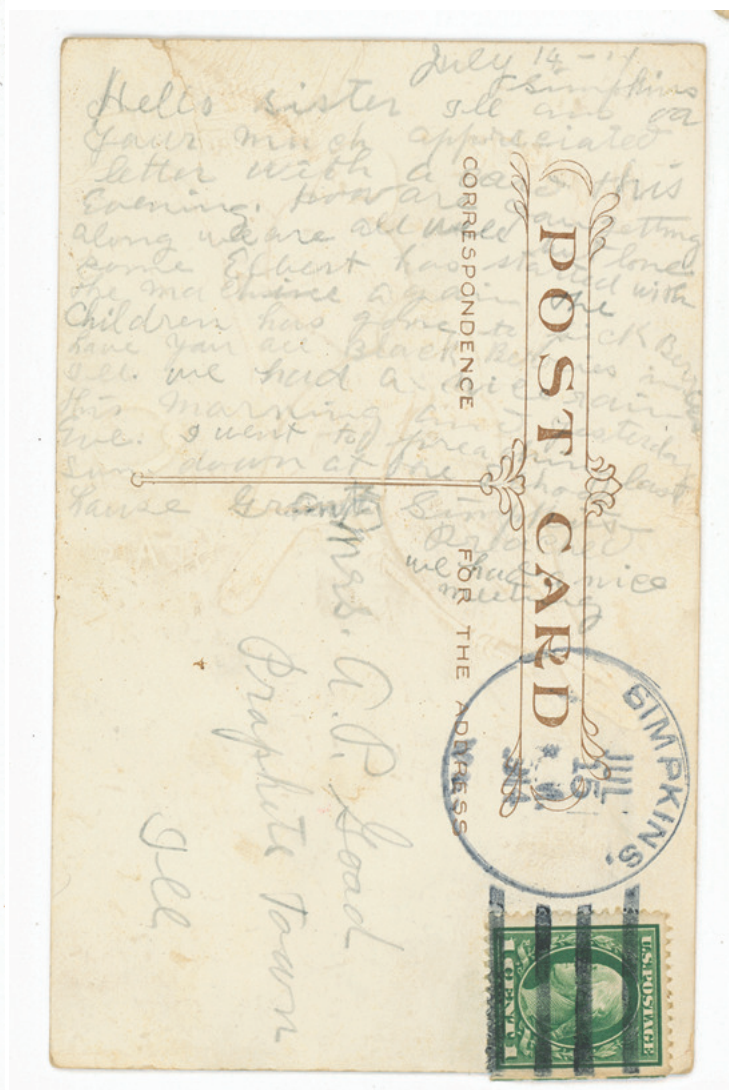 July 14 -
Simpkins va
Hello sister Ill an
your much appreciated
letter with a card this
Evening. how are
along we are all well getting
some Elbert has started with
the machine again the
Children has gone to pick Berries
have you all Black Berries in
Ill. we had a nice rain
this morning and yesterday
eve. I went to preaching last
sun down at the school
house Grant Simpkins
Preached
we had a nice
meeting
POST CARD
CORRESPONDENCE
FOR THE ADDRESS
Mrs. A. P. Goad
Prophets Town
Ill
SIMPKINS.
JUL
15
U.S. POSTAGE
1 CENT 1